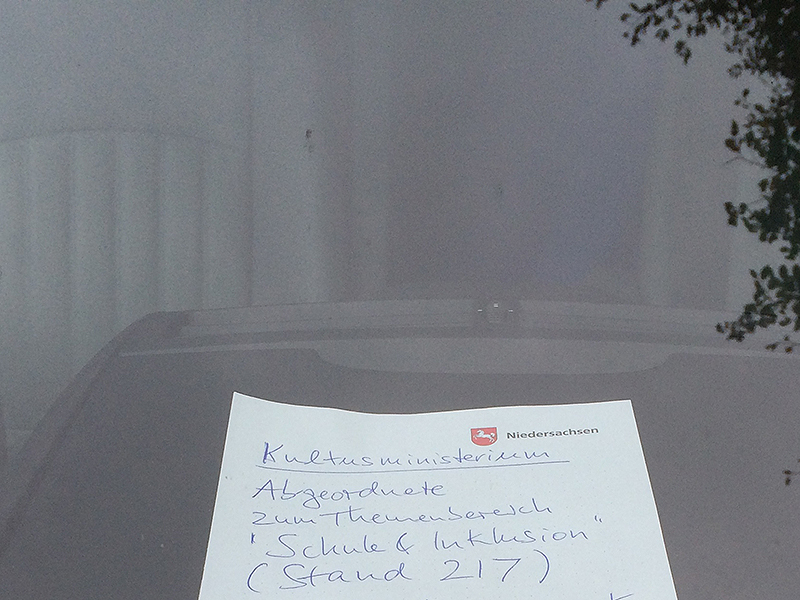 Niedersachsen
Kultusministerium
Abgeordnete
zum Themenbereich
"Schule & Inklusion"
(Stand 217)